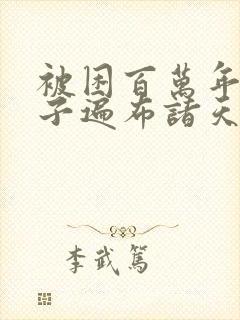 被困百萬年
子遍布諸天
李武篤